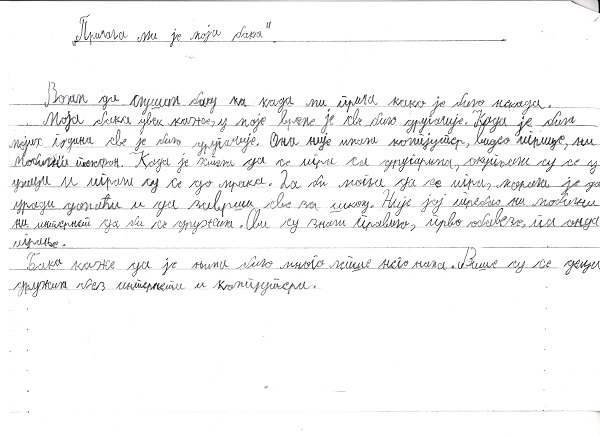 „Причала ми је моја бака".
Волим да слушам баку па када ми прича како је било некада.
Моја бака увек каже, у моје време је све било другачије. Када је била
мојих година све је било другачије. Она није имала компјутер, видео игрице, ни
мобилни телефон. Када је хтела да се игра са другарима, окупљали су се у
улици и играли су се до мрака. Да би могла да се игра, морала је да
уради домаћи и да заврши све за школу. Није јој требао ни мобилни
ни интернет да би се дружила. Они су знали правило, прво обавезе, па онда
играње.
Бака каже да је њима било много лепше него нама. Више су се деца
дружила без интернета и компјутера.